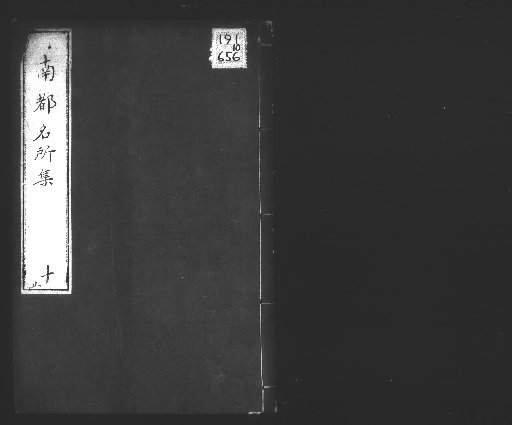 南都名所集 十
191
10
656